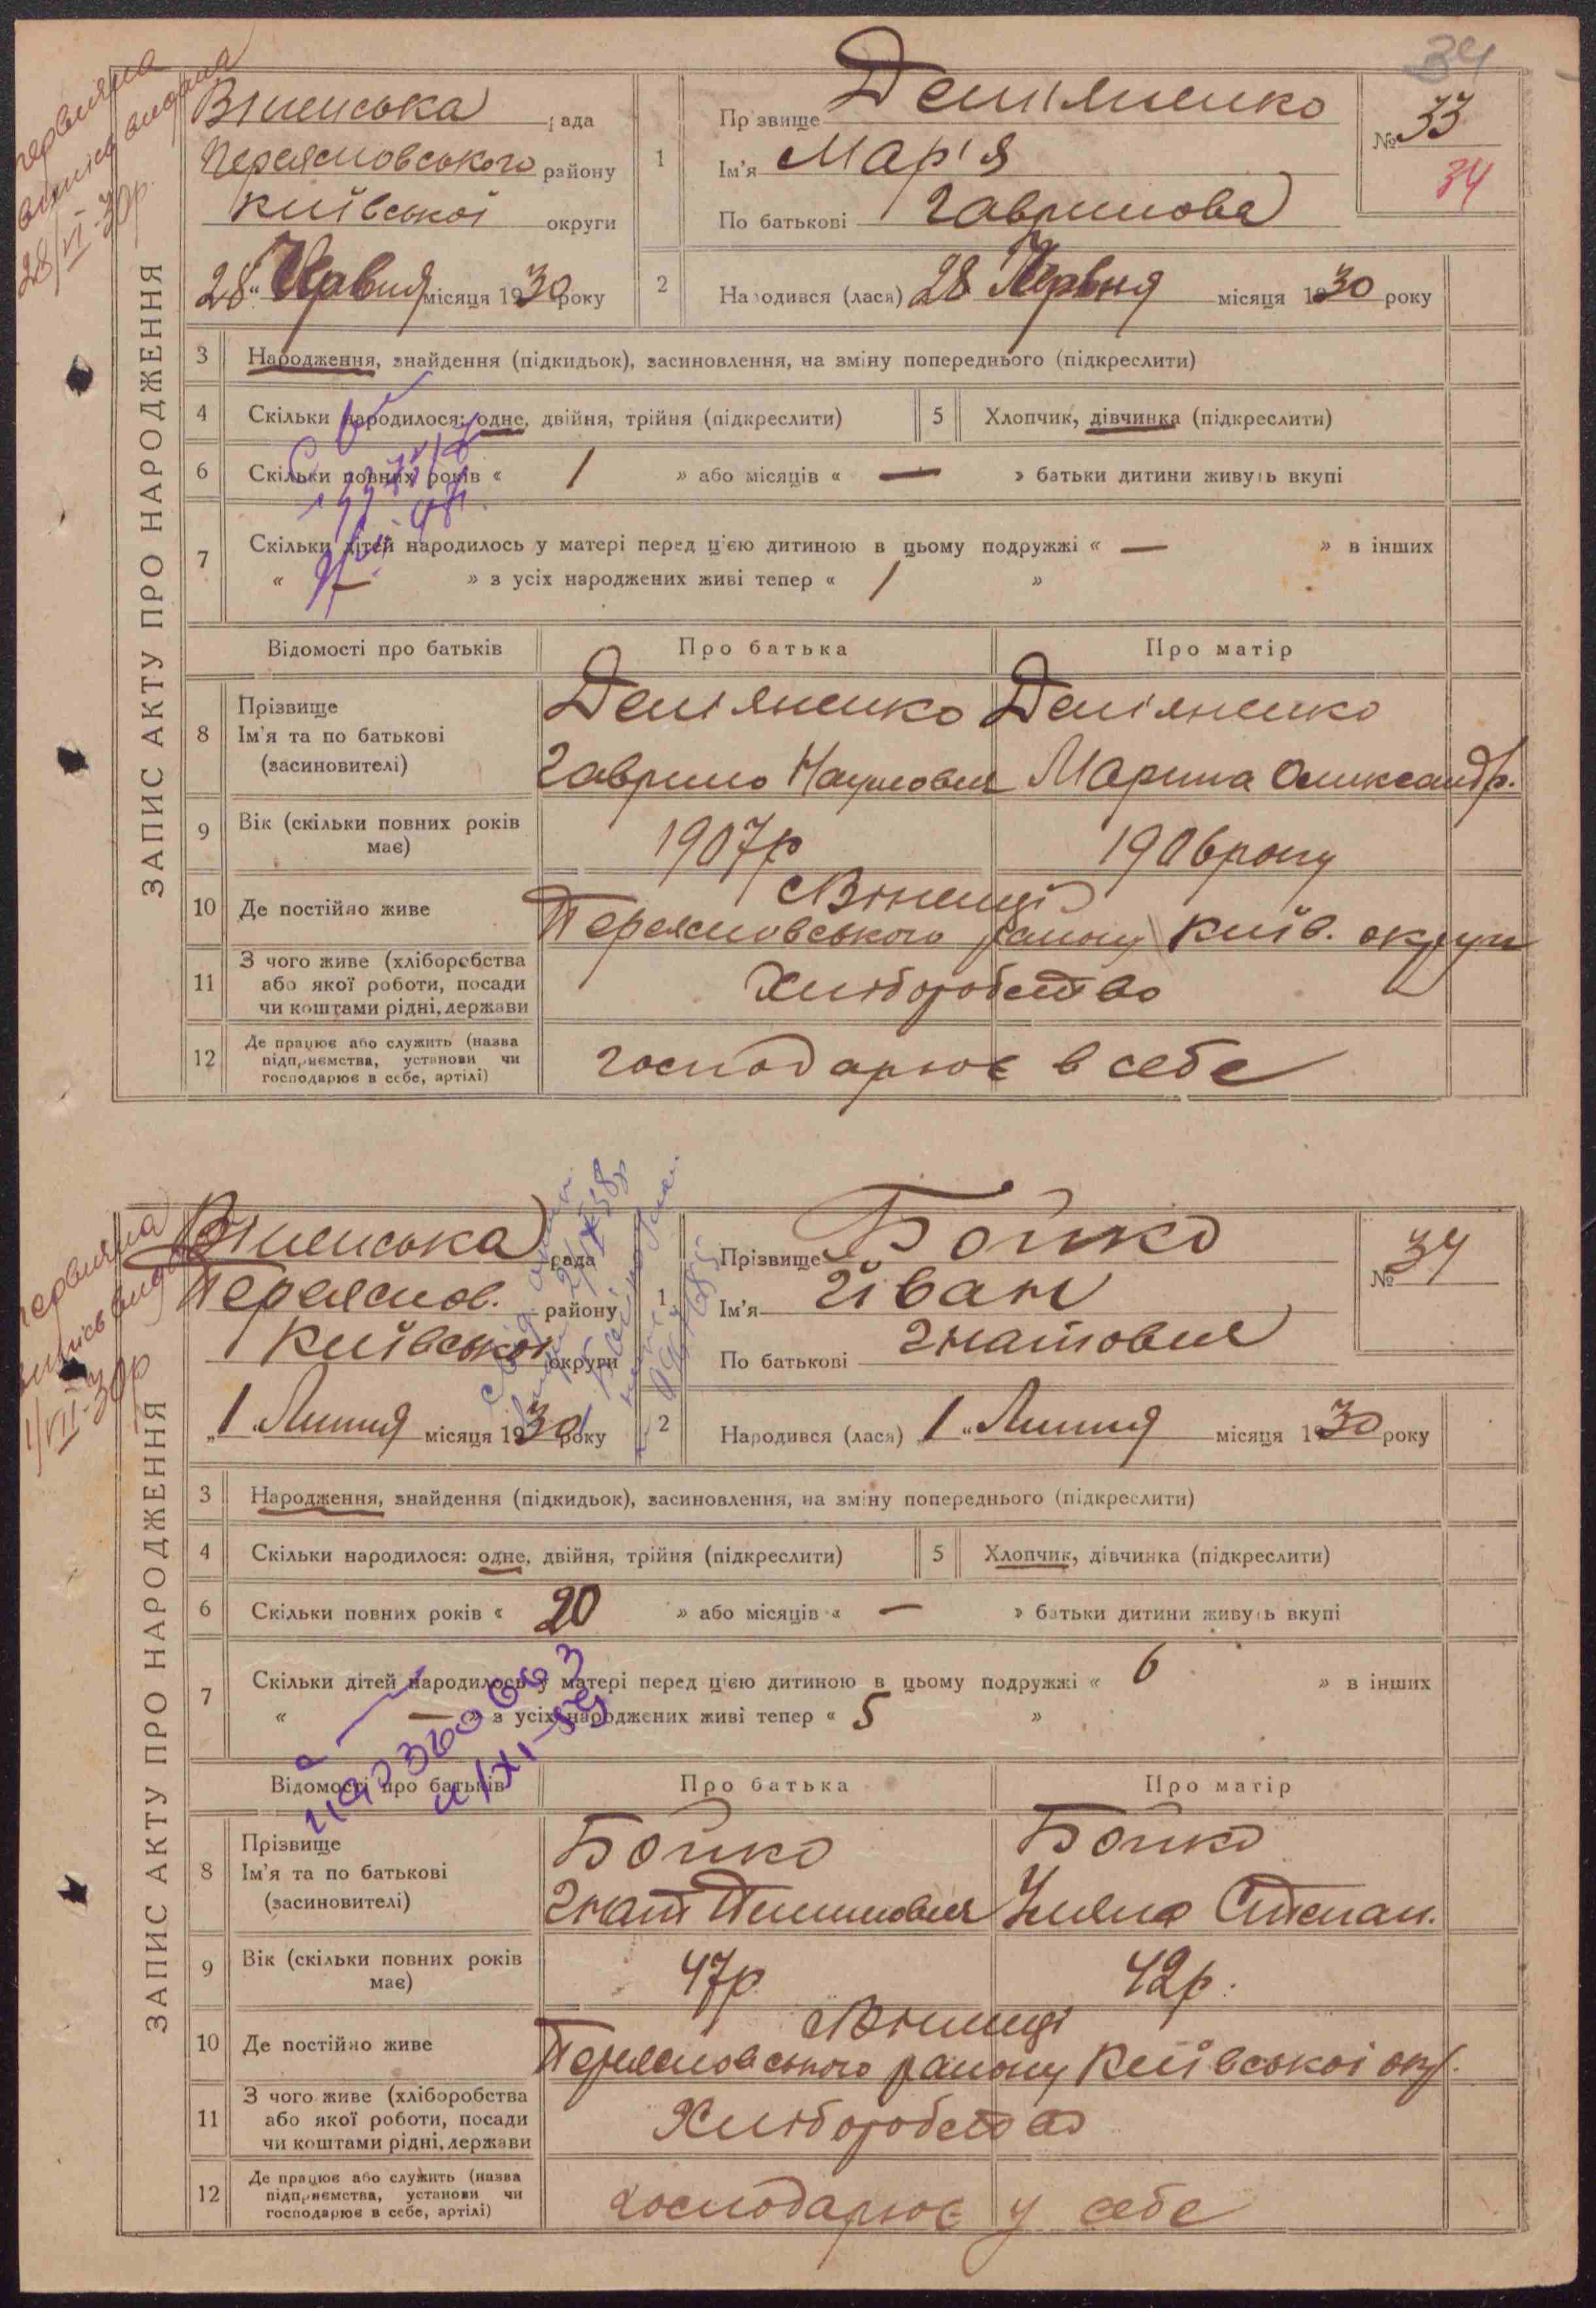 34
первісна
виписка видана
28/VI-30р.
ЗАПИС АКТУ ПРО НАРОДЖЕННЯ
Віненська рада
Переяславського району
Київської округи
28 „ Червня місяця 1930 року
1
Прізвище Дем'яненко
Ім'я Мар'я
По батькові Гаврилова
№ 33
34
2
Народився (лася) 28 Червня місяця 1930 року
3 Народження, знайдення (підкидьок), засиновлення, на зміну попереднього (підкреслити)
4 Скільки народилося: одне, двійня, трійня (підкреслити)
5 Хлопчик, дівчинка (підкреслити)
6 Скільки повних років « 1 » або місяців « — » батьки дитини живуть вкупі
7 Скільки дітей народилось у матері перед цією дитиною в цьому подружжі « — » в інших
« — » з усіх народжених живі тепер « 1 »
Відомості про батьків Про батька Про матір
8 Прізвище
Ім'я та по батькові
(засиновителі)
Дем'яненко Дем'яненко
Гаврило Наумович Марина Олександр.
9 Вік (скільки повних років
має)
1907р 1906 року
10 Де постійно живе
с Вінниці
Переяславського району Київ. округи
11 З чого живе (хліборобства
або якої роботи, посади
чи коштами рідні, держави
Хліборобство
12 Де працює або служить (назва
підприємства, установи чи
господарює в себе, артілі)
господарює в себе
первісна
1/VII-30р
ЗАПИС АКТУ ПРО НАРОДЖЕННЯ
Віненська рада
Переяслов. району
Київської округи
„1 Липня місяця 1930 року
1
Прізвище Бойко
Ім'я Йван
По батькові Гнатович
№ 34
2
Народився (лася) „1 “ Липня місяця 1930 року
3 Народження, знайдення (підкидьок), засиновлення, на зміну попереднього (підкреслити)
4 Скільки народилося: одне, двійня, трійня (підкреслити)
5 Хлопчик, дівчинка (підкреслити)
6 Скільки повних років « 20 » або місяців « — » батьки дитини живуть вкупі
7 Скільки дітей народилось у матері перед цією дитиною в цьому подружжі « 6 » в інших
« — » з усіх народжених живі тепер « 5 »
Відомості про батьків Про батька Про матір
8 Прізвище
Ім'я та по батькові
(засиновителі)
Бойко Бойко
Гнат Пилипович Уляна Степан.
9 Вік (скільки повних років
має)
47р 42р.
10 Де постійно живе
с Вінниці
Переяславського району Київської окр.
11 З чого живе (хліборобства
або якої роботи, посади
чи коштами рідні, держави
Хліборобство
12 Де працює або служить (назва
підприємства, установи чи
господарює в себе, артілі)
господарює у себе